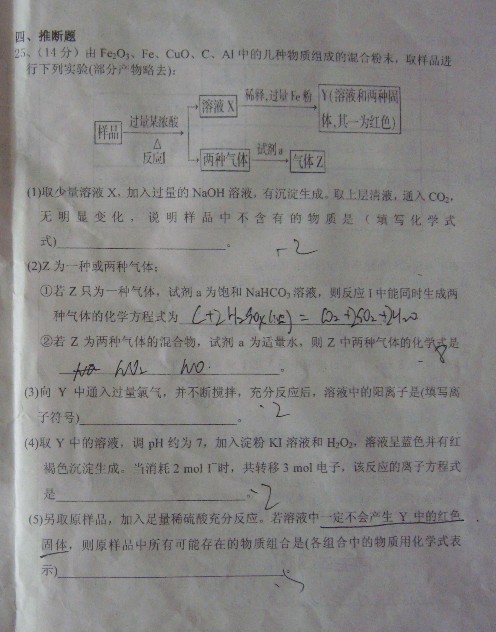 四、推断题
25、(14分) 由 Fe₂O₃、Fe、CuO、C、Al 中的几种物质组成的混合粉末，取样品进
行下列实验(部分产物略去):
样品
过量某浓酸
△
反应I
溶液 X
稀释,过量Fe粉
Y(溶液和两种固
体,其一为红色)
两种气体
试剂a
气体Z
(1)取少量溶液 X，加入过量的 NaOH 溶液，有沉淀生成。取上层清液，通入 CO₂，
无明显变化，说明样品中不含有的物质是（填写化学式
式)。
-2
(2)Z 为一种或两种气体:
①若 Z 只为一种气体，试剂 a 为饱和 NaHCO₃ 溶液，则反应 I 中能同时生成两
种气体的化学方程式为 C+2H₂SO₄(浓) = CO₂+2SO₂+2H₂O
②若 Z 为两种气体的混合物，试剂 a 为适量水，则 Z 中两种气体的化学式是
NO₂ NO.。
-8
(3)向 Y 中通入过量氯气，并不断搅拌，充分反应后，溶液中的阳离子是(填写离
子符号)。
-2
(4)取 Y 中的溶液，调 pH 约为 7，加入淀粉 KI 溶液和 H₂O₂，溶液呈蓝色并有红
褐色沉淀生成。当消耗 2 mol I⁻时，共转移 3 mol 电子，该反应的离子方程式
是。
-2
(5)另取原样品，加入足量稀硫酸充分反应。若溶液中一定不会产生 Y 中的红色
固体，则原样品中所有可能存在的物质组合是(各组合中的物质用化学式表
示)。